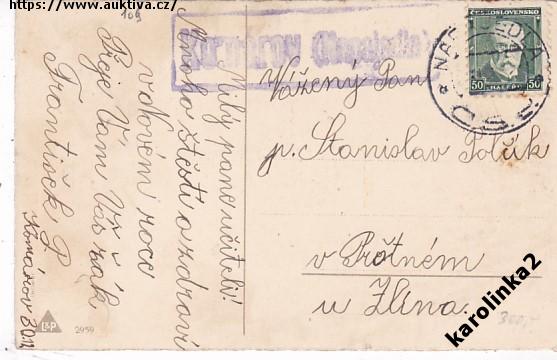 https://www.auktiva.cz/
109
Milý pane učiteli!
Mnoho štěstí a zdraví
v Novém roce
Přeje Vám Váš žák
František P.
Komárov 30.12
L&P
2959
ČESKOSLOVENSKO
50
50
HALÉŘŮ
Vážený Pan
p. Stanislav Polák
v Prštném
u Zlína
300,-
karolinka2